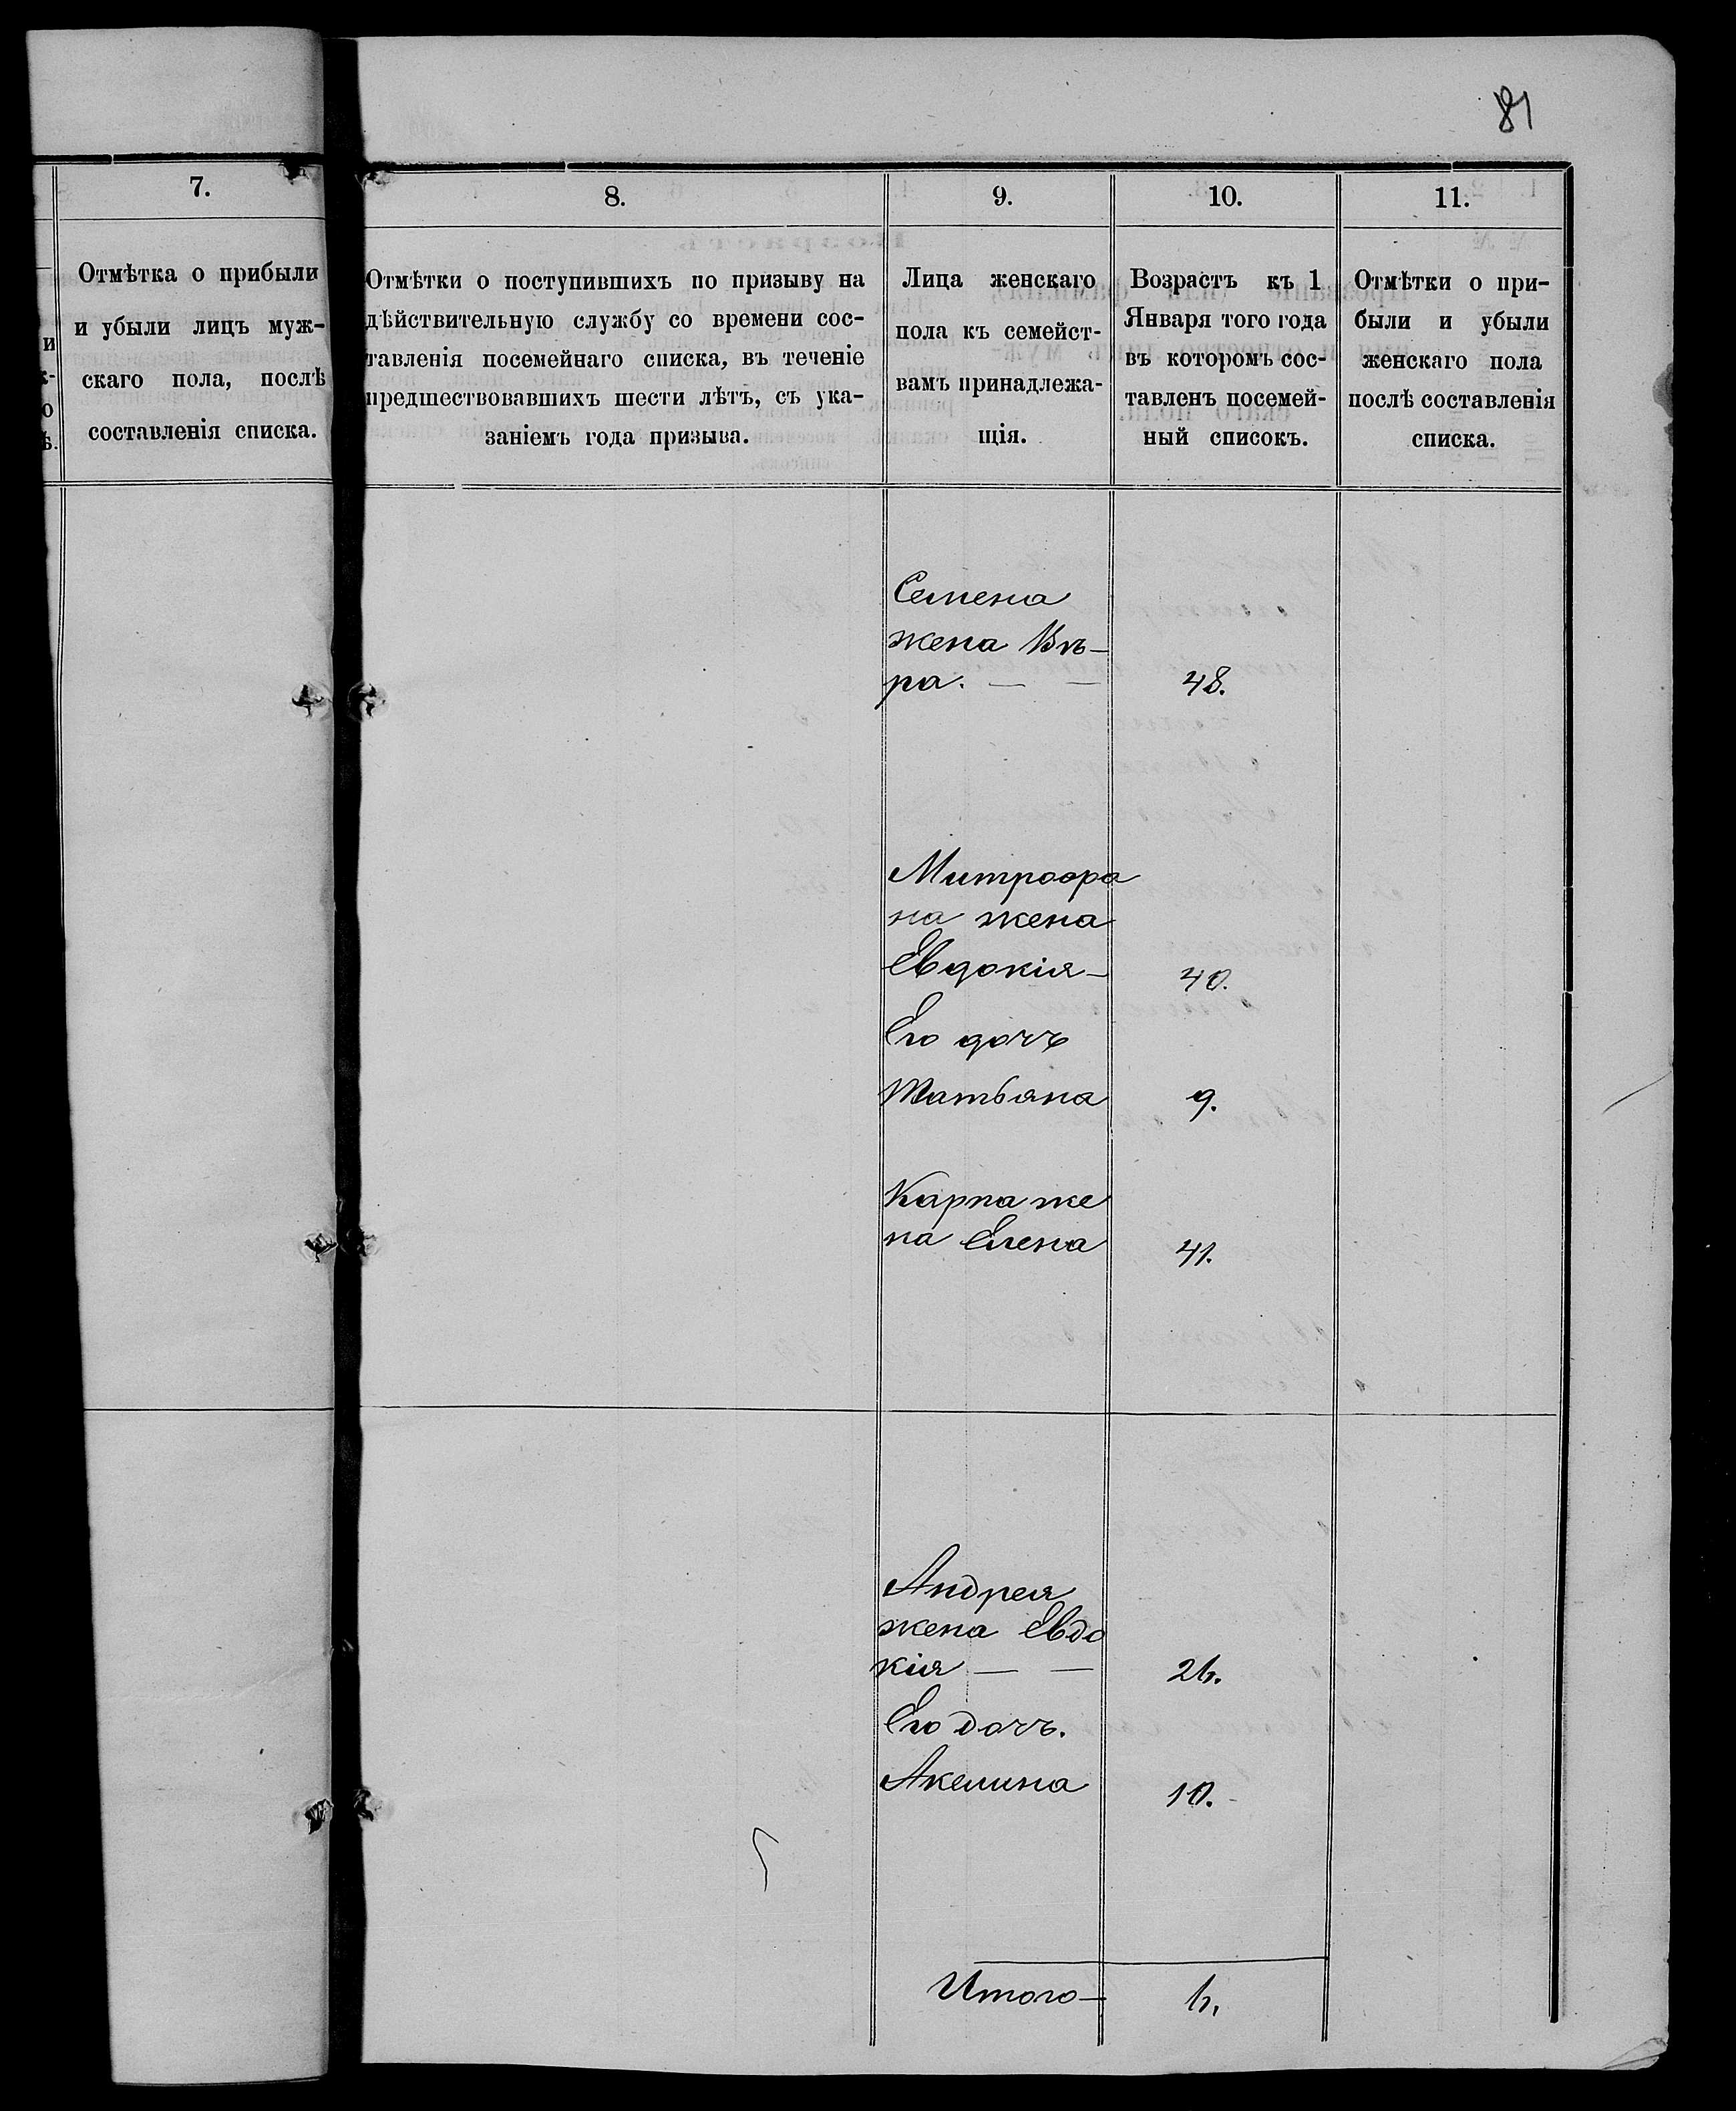 81
7.
Отмѣтка о прибыли
и убыли лицъ муж-
скаго пола, послѣ
составленія списка.
8.
Отмѣтки о поступившихъ по призыву на
дѣйствительную службу со времени сос-
тавленія посемейнаго списка, въ теченіе
предшествовавшихъ шести лѣтъ, съ ука-
заніемъ года призыва.
9.
Лица женскаго
пола къ семейст-
вамъ принадлежа-
щія.
10.
Возрастъ къ 1
Января того года
въ которомъ сос-
тавленъ посемей-
ный списокъ.
11.
Отмѣтки о при-
были и убыли
женскаго пола
послѣ составленія
списка.
Семена
жена Вѣ-
ра. — — 48.
Митрофа
на жена
Евдокія - 40.
Его дочь
Татьяна 9.
Карпа же
на Елена 41.
Андрея
жена Евдо
кія — — 26.
Его дочь.
Акелина 10.
Итого - 6.